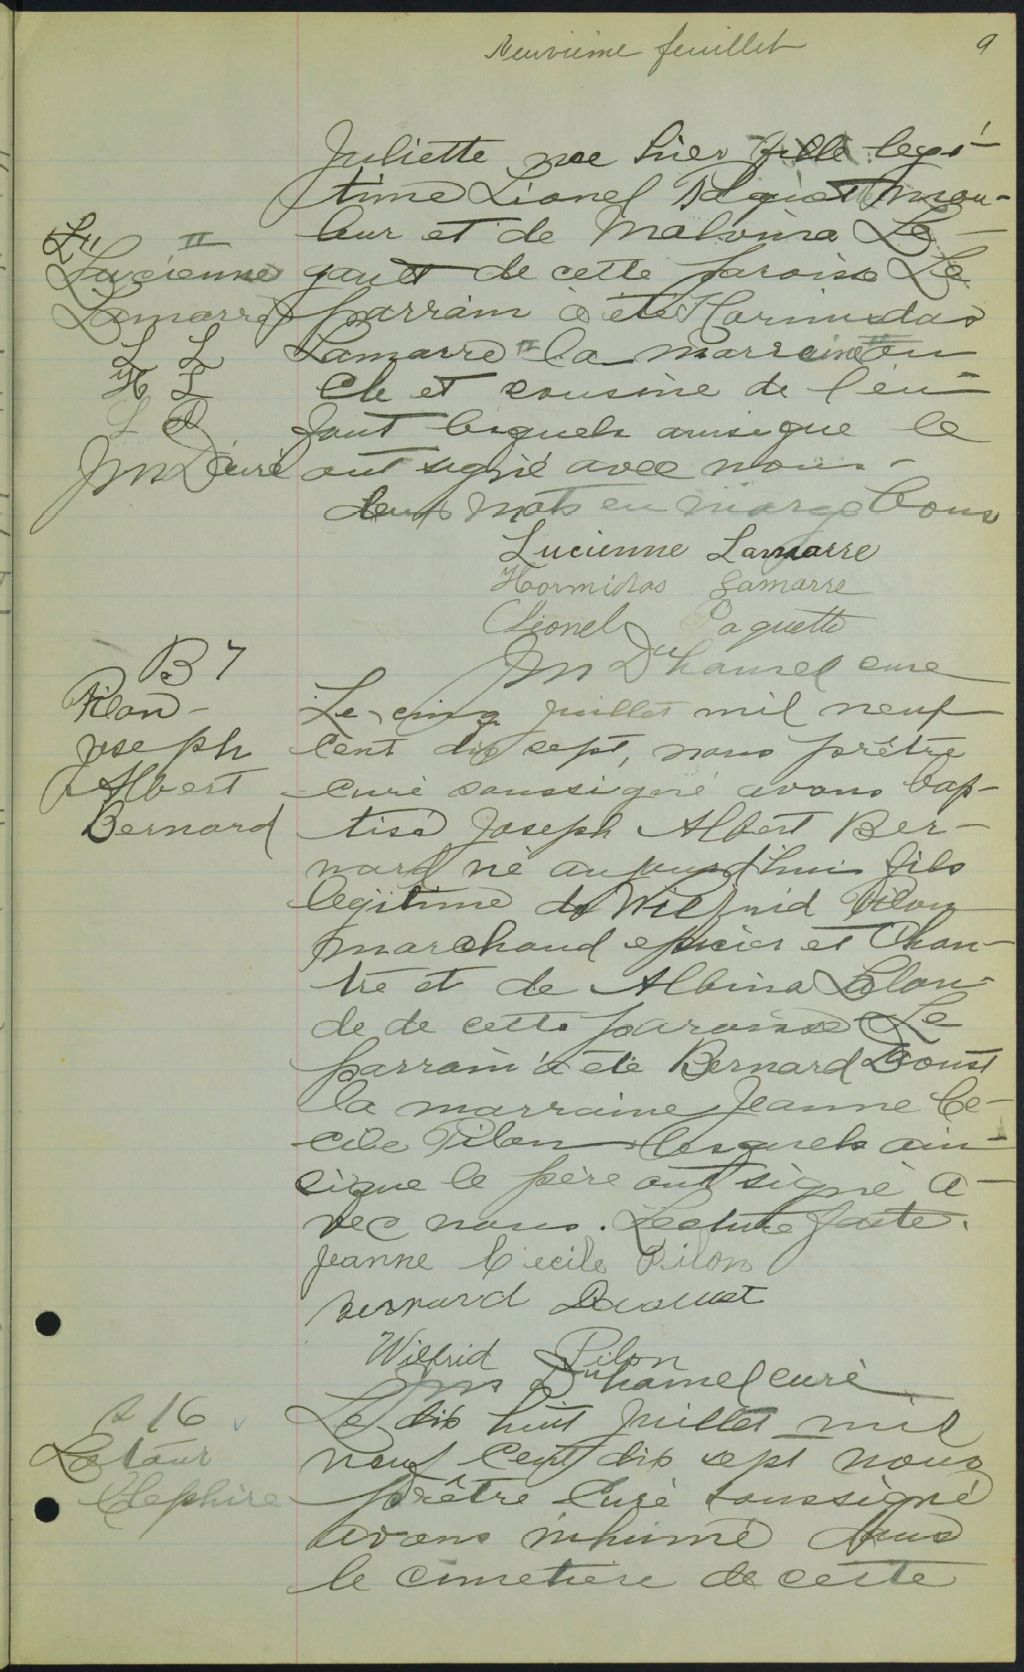 Neuvième feuillet 9
Juliette née hier fille légi-
time Lionel Paquet mou-
leur et de Malvina Le-
gault de cette paroisse Le
parrain a été Hormisdas
Lamarre II la marraine II on
cle et cousine de l'en-
fant lesquels ainsi que le
ont signé avec nous -
deux mots en marge bons
II
Lucienne
Lamarre
L L
H L
L P
J M D curé
Lucienne Lamarre
Hormidas Lamarre
Lionel Paquette
J M Duhamel curé
B 7
Pilon -
Joseph
Albert
Bernard
Le cinq juillet mil neuf
cent dix sept, nous prêtre
curé soussigné avons bap-
tisé Joseph Albert Ber-
nard né aujourd'hui fils
légitime de Wilfrid Pilon
marchand epicier et Chan-
tre et de Albina Lalon-
de de cette paroisse Le
parrain a été Bernard Daoust
la marraine Jeanne Ce-
cile Pilon lesquels ain-
sique le père ont signé a-
vec nous. Lecture faite.
Jeanne Cecile Pilon
Bernard Daoust
Wilfrid Pilon
J M Duhamel curé
S 16
Latour
Zéphire
Le dix huit Juillet mil
neuf cent dix sept nous
prêtre Curé soussigné
avons inhumé dans
le cimetière de cette